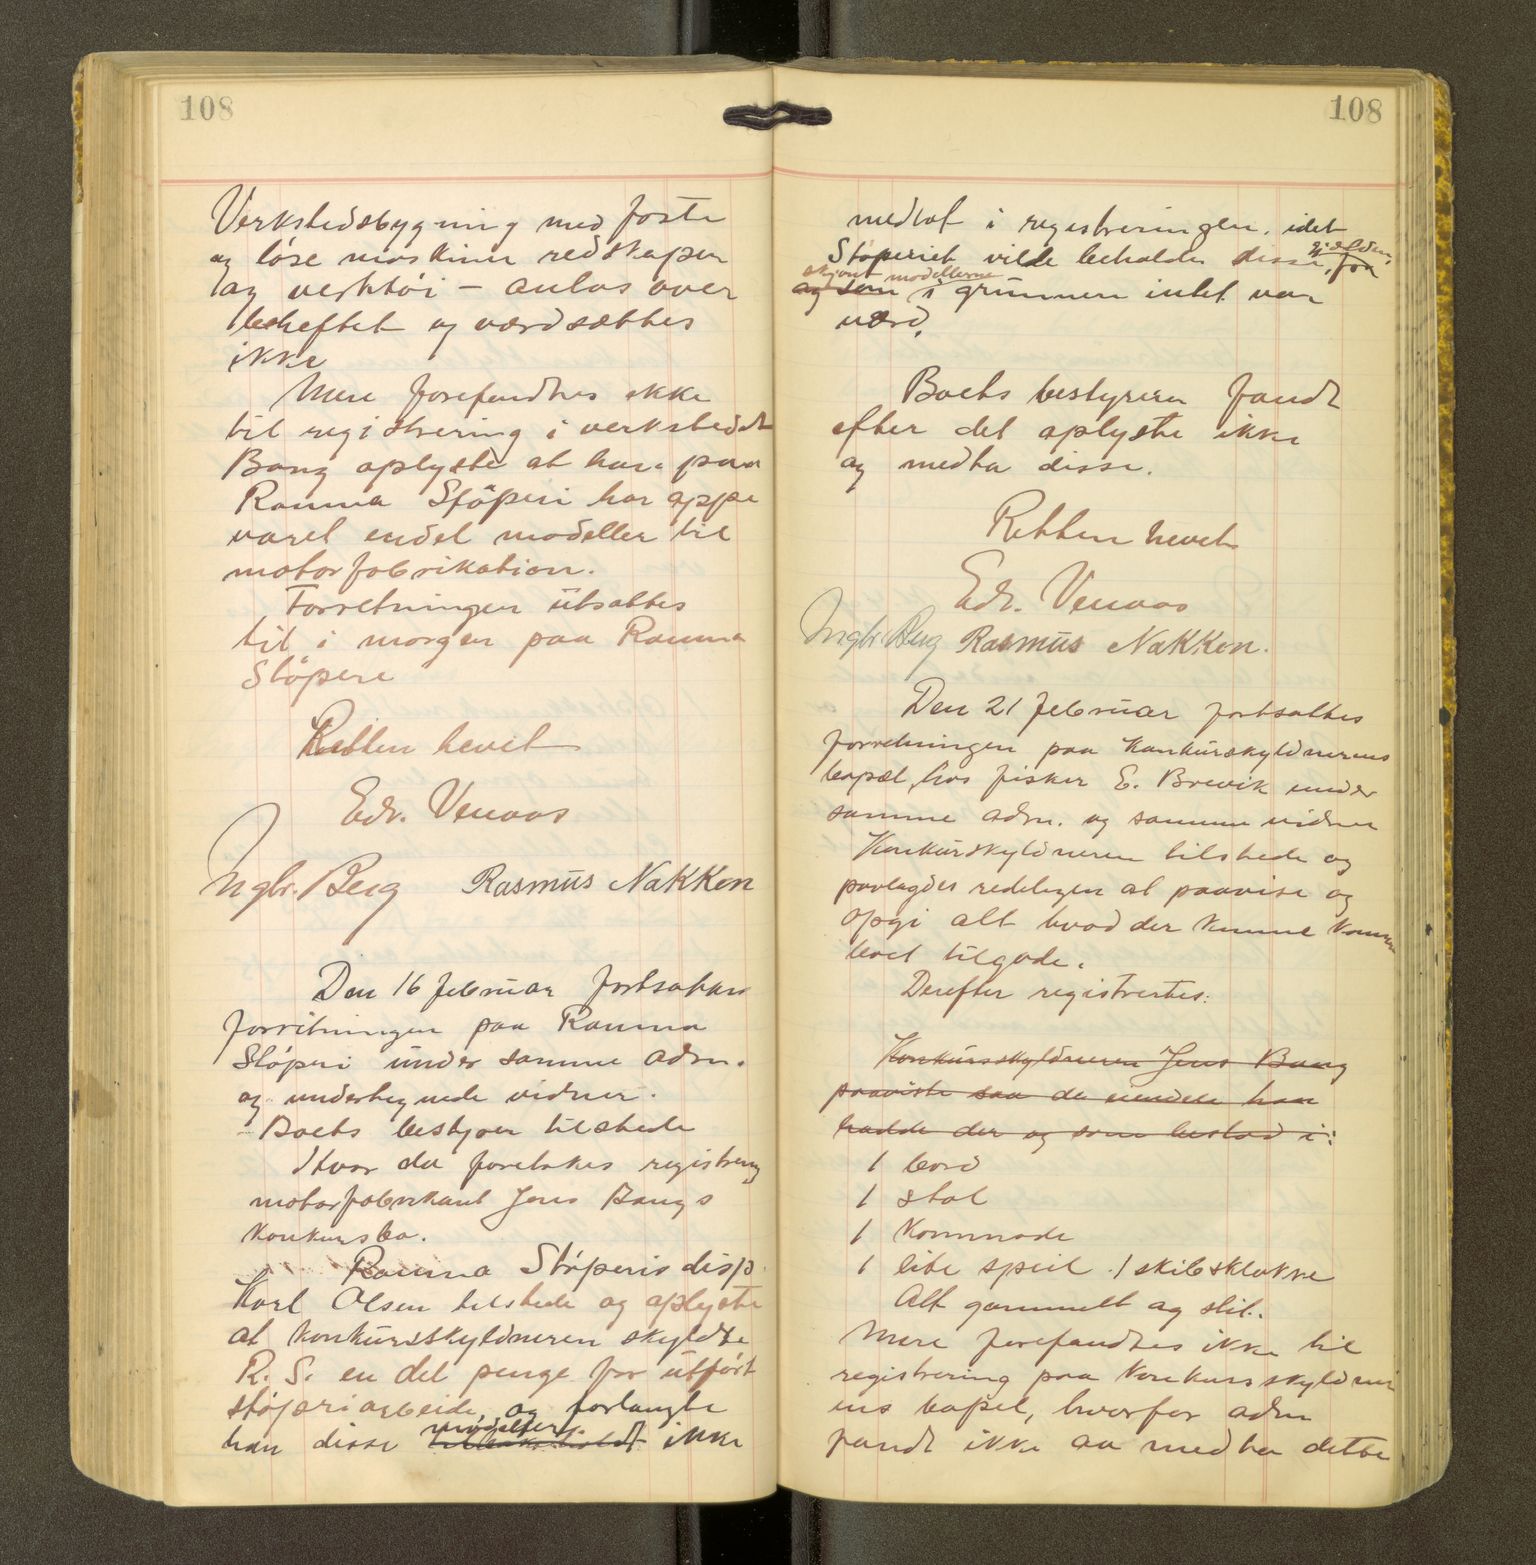 108
Verkstedsbygning med faste
og löse maskiner redskaper
og verktöi – anlas over
beheftet og værdsættes
ikke
Mere forefandtes ikke
til registrering i verkstedet
Bang oplyste at han paa
Rauma Stöperi har oppe
varet endel modeller til
motorfabrikation.
Forretningen utsattes
til i morgen paa Rauma
Stöperi
Retten hevet
Edv. Venaas
Ingbr. Berg Rasmus Nakken
Den 16 februar fortsattes
forretningen paa Rauma
Stöperi under samme adm.
og undertegnede vidner.
Boets bestyrer tilstede
Hvor da foretokes registrering
motorfabrikant Jens Bangs
konkursbo.
Rauma Stöperis disp.
Karl Olsen tilstede og oplyste
at konkursskyldneren skyldte
R. S. en del penge for utfört
stöperiarbeide, og forlangte
han disse modeller ikke
108
medtat i registreringen, idet
Stöperiet vilde beholde disse, for gjælden,
og som skjönt modellerne i grunnen intet var
værd.
Boets bestyrer fandt
efter det oplyste ikke
og medta disse.
Retten hevet
Edv. Venaas
Ingbr Berg Rasmus Nakken.
Den 21 februar fortsattes
forretningen paa konkursskyldnerens
bopæl, hos fisker E. Brevik under
samme adm. og samme vidner
Konkursskyldneren tilstede og
paalagdes redeligen at paavise og
opgi alt hvad der kunne komme
boet tilgode.
Derefter registrertes:
Konkursskyldneren Jens Bang
paaviste saa de eiendele han
hadde der og som bestod i:
1 bord
1 stol
1 Kommode
1 lite speil. 1 skibsklokke
Alt gammelt og slit.
Mere forefandtes ikke til
registrering paa konkursskyldner
ens bopel, hvorfor adm
fandt ikke aa medta dette